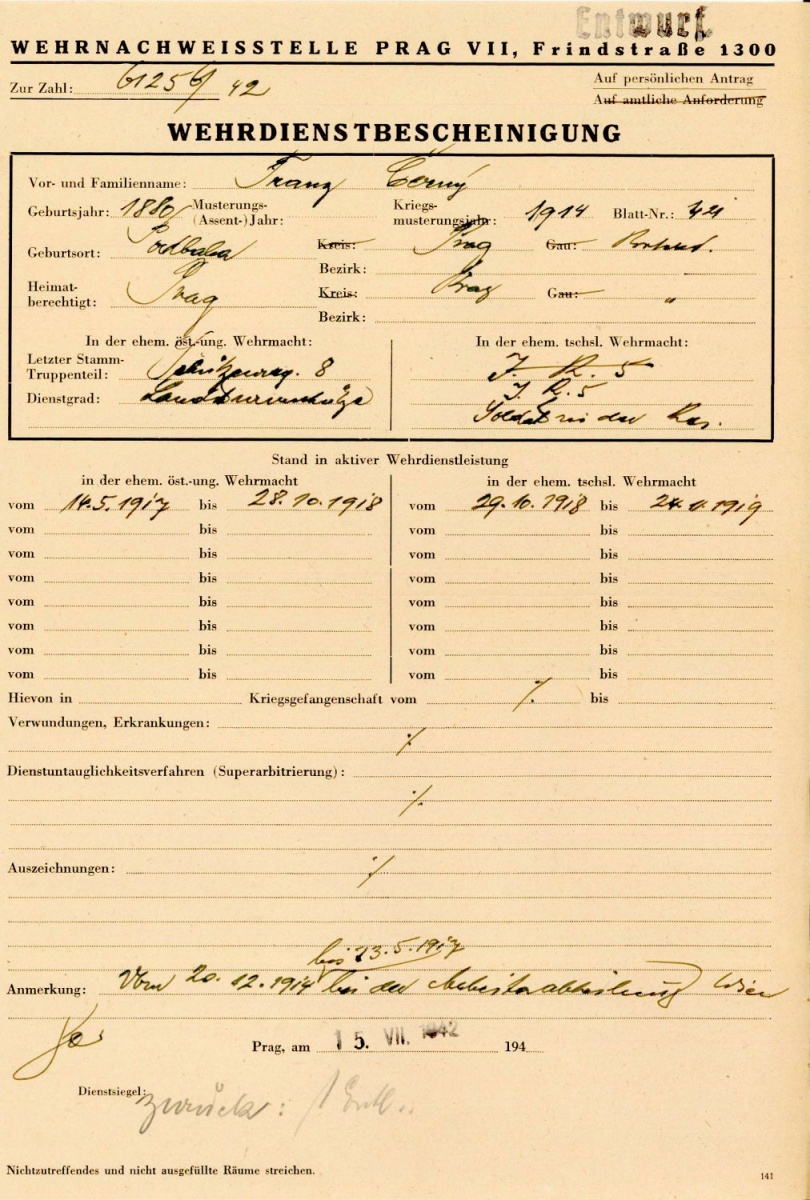 Entwurf.
WEHRNACHWEISSTELLE PRAG VII, Frindstraße 1300
Zur Zahl: 42
Auf persönlichen Antrag
Auf amtliche Anforderung
WEHRDIENSTBESCHEINIGUNG
Vor- und Familienname: Franz Černý
Geburtsjahr: 1880 Musterungs-(Assent-)Jahr: Kriegsmusterungsjahr: 1914 Blatt-Nr.:
Geburtsort: Podbaba Kreis: Prag Gau:
Bezirk:
Heimatberechtigt: Prag Kreis: Prag Gau: "
Bezirk:
In der ehem. öst.-ung. Wehrmacht: In der ehem. tschsl. Wehrmacht:
Letzter Stamm-Truppenteil: Schützenreg. 8 J. R. 5
J. R. 5
Dienstgrad: Landsturmschütze Soldat in der Res.
Stand in aktiver Wehrdienstleistung
in der ehem. öst.-ung. Wehrmacht in der ehem. tschsl. Wehrmacht
vom 14.5.1917 bis 28.10.1918 vom 29.10.1918 bis 1919
vom bis vom bis
vom bis vom bis
vom bis vom bis
vom bis vom bis
vom bis vom bis
vom bis vom bis
vom bis vom bis
Hievon in Kriegsgefangenschaft vom ./. bis
Verwundungen, Erkrankungen:
./.
Dienstuntauglichkeitsverfahren (Superarbitrierung):
./.
Auszeichnungen: ./.
bis 13.5.1917
Anmerkung: Vom 20.12.1914 bei der Arbeiterabteilung Wien
Prag, am 15. VII. 1942 194
Dienstsiegel:
zurück: 1
Nichtzutreffendes und nicht ausgefüllte Räume streichen.
141